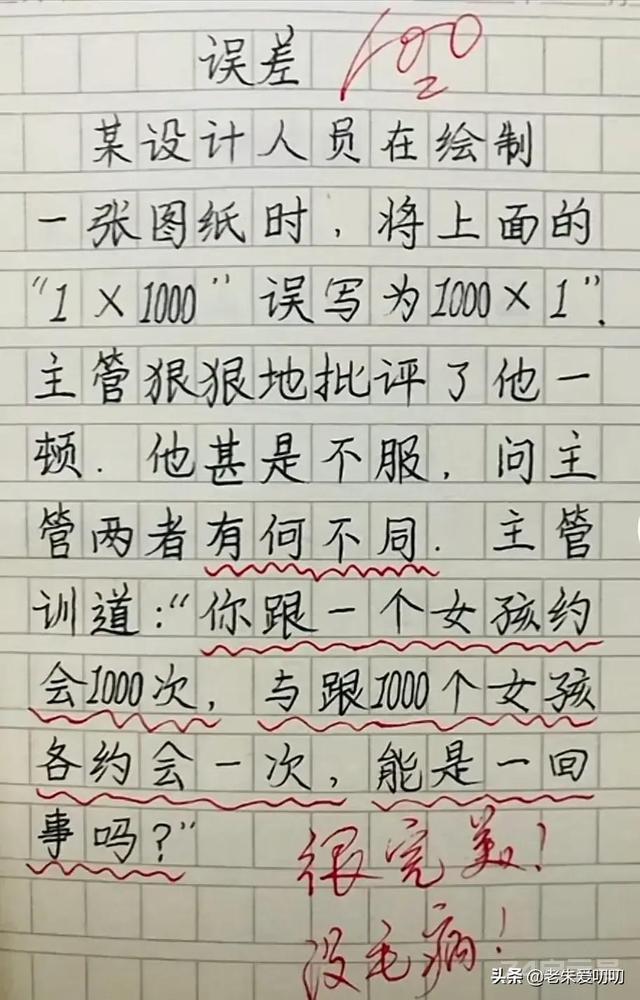 误差 100
某设计人员在绘制
一张图纸时，将上面的
“1×1000”误写为1000×1”.
主管狠狠地批评了他一
顿. 他甚是不服, 问主
管两者有何不同. 主管
训道:“你跟一个女孩约
会1000次, 与跟1000个女孩
各约会一次, 能是一回
事吗?”
很完美!
没毛病!
头条 @老朱爱叨叨